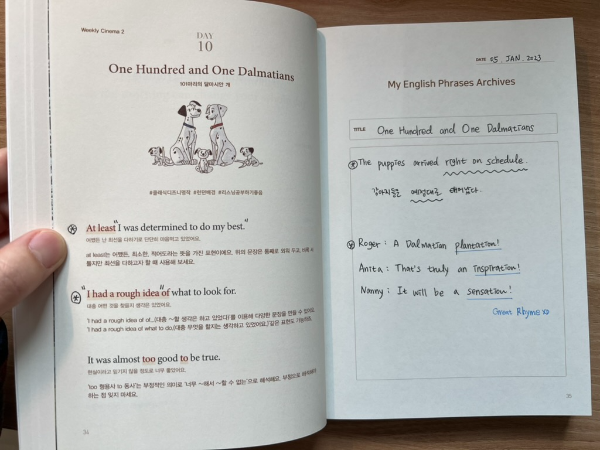 Weekly Cinema 2
DAY
10
One Hundred and One Dalmatians
101마리의 달마시안 개
#클래식디즈니명작 #런던배경 #리스닝공부하기좋음
At least "I was determined to do my best."
어쨌든 난 최선을 다하기로 단단히 마음먹고 있었어요.
at least는 어쨌든, 최소한, 적어도라는 뜻을 가진 표현이에요. 위의 문장은 통째로 외워 두고,
들지만 최선을 다하고자 할 때 사용해 보세요.
"I had a rough idea of" what to look for.
대충 어떤 것을 찾을지 생각은 있었어요.
'I had a rough idea of of...(대충 ~할 생각은 하고 있었다)'를 이용해 다양한 문장을 만들 수 있어요.
'I had a rough idea of what to do.(대충 무엇을 할지는 생각하고 있었어요.)' 같은 표현도 가능하죠.
It was almost too good to be true.
현실이라고 믿기지 않을 정도로 너무 좋았어요.
'too 형용사 to 동사'는 부정적인 의미로 '너무 ~해서 ~할 수 없는'으로 해석해요. 부정으로 해석해야
하는 점 잊지 마세요.
34
DATE 25 JAN. 2023
My English Phrases Archives
TITLE One Hundred and One Dalmatians
The puppies arrived right on schedule.
강아지들은 예정대로 태어났다.
Roger : A Dalmatian plantation!
Anita : That's truly an inspiration!
Nanny : It will be a sensation!
Great Rhyme
35